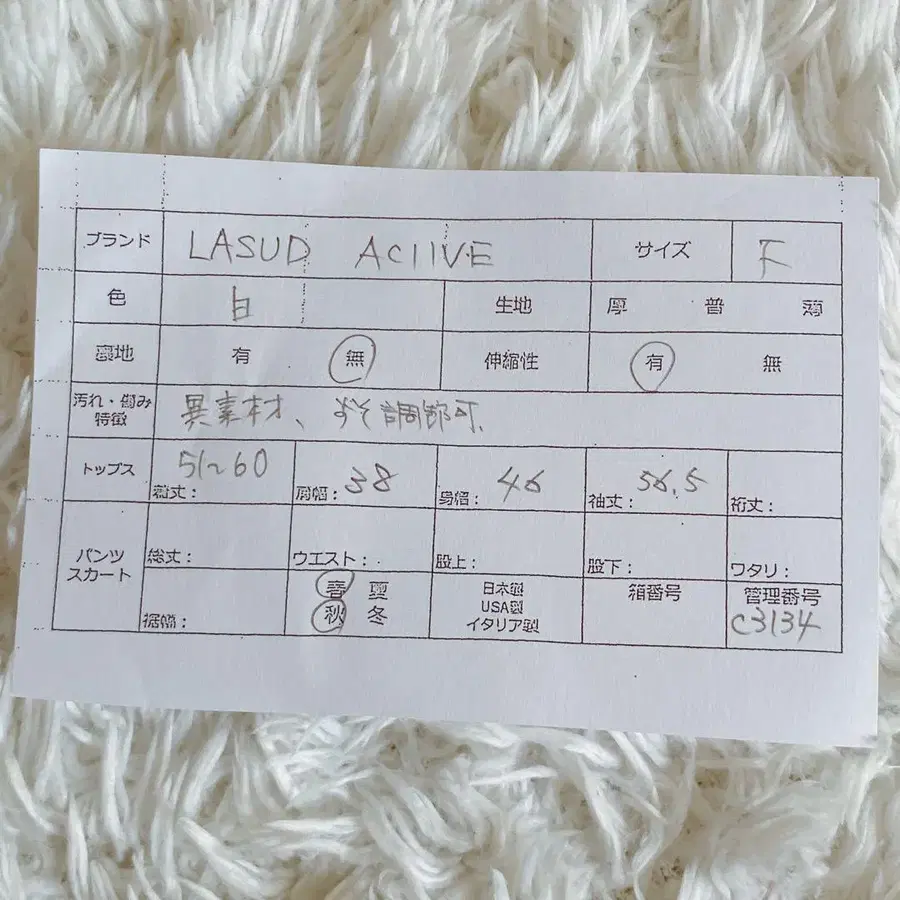 ブランド LASUD ACIIVE サイズ F
色 白 生地 厚 普 薄
裏地 有 無 伸縮性 有 無
汚れ・傷み
特徴 異素材、すそ調節可、
トップス 51~60 38 46 56.5
着丈: 肩幅: 身幅: 袖丈: 裄丈:
パンツ
スカート 総丈: ウエスト: 股上: 股下: ワタリ:
裾幅: 春 夏
秋 冬 日本製
USA製
イタリア製 箱番号 管理番号
C3134